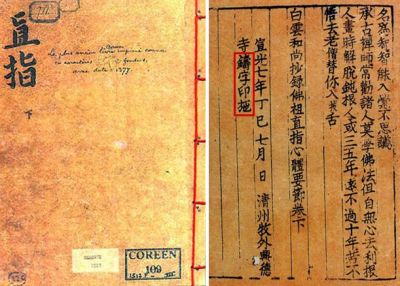 直指
下
Le plus ancien livre coréen imprimé connu
en caractères fondus,
avec date = 1377.
COREEN
109
承古禪師常勸諸人莫學佛法但自無心去利根
人晝時解脫鈍根人或三五年遠不過十年若不
悟去老僧替你入舌
白雲和尚抄錄佛祖直指心體要節卷下
宣光七年丁巳七月 日 清州牧外興德
寺鑄字印施